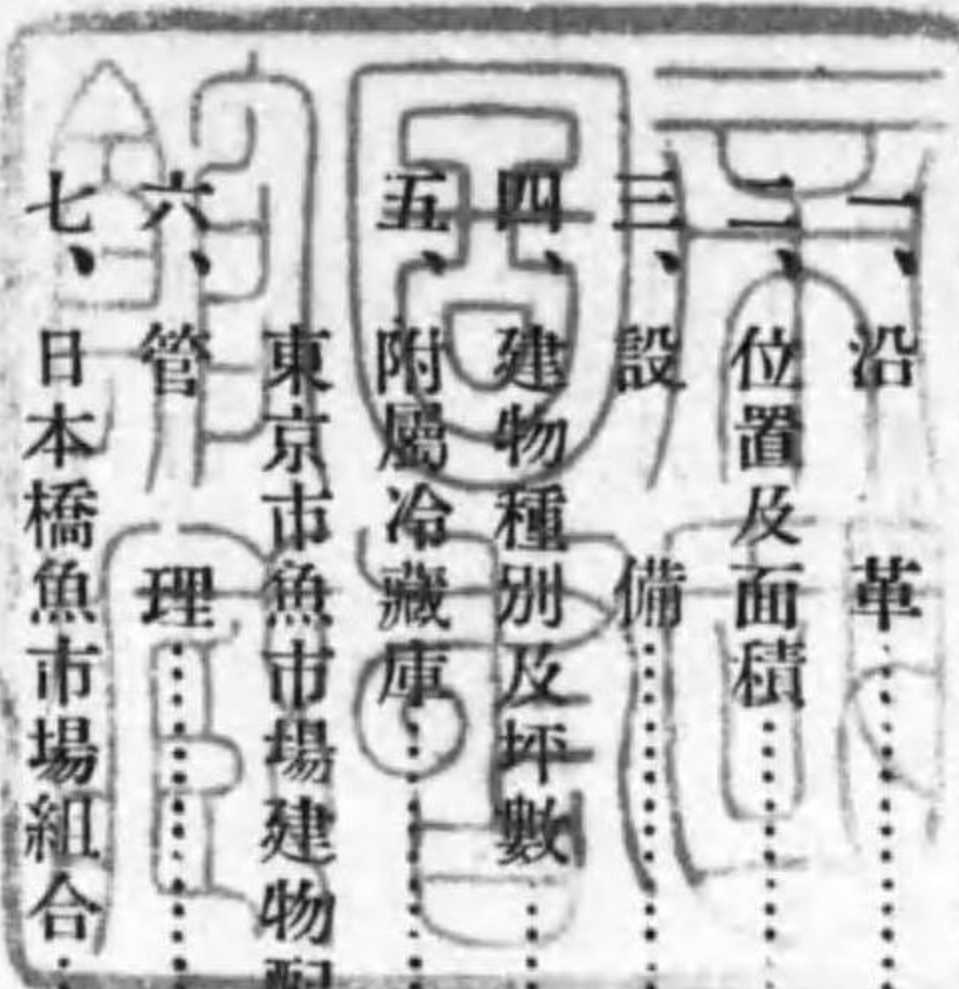 一、沿革
二、位置及面積
三、設備
四、建物種別及坪數
五、附屬冷藏庫
東京市魚市場建物配
六、管理
七、日本橋魚市場組合